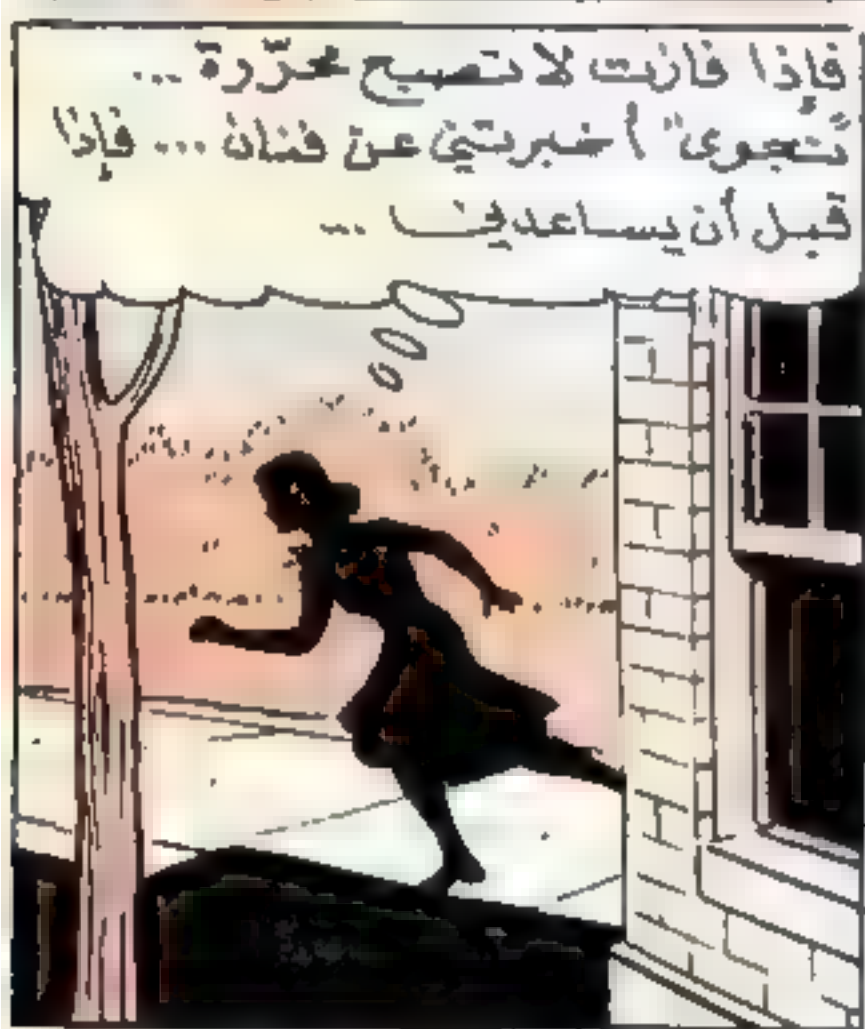 فإذا فازت لا تصبح محرّرة ...
"نجوى" أخبرتني عن فنان ... فإذا
قبل أن يساعدني ...